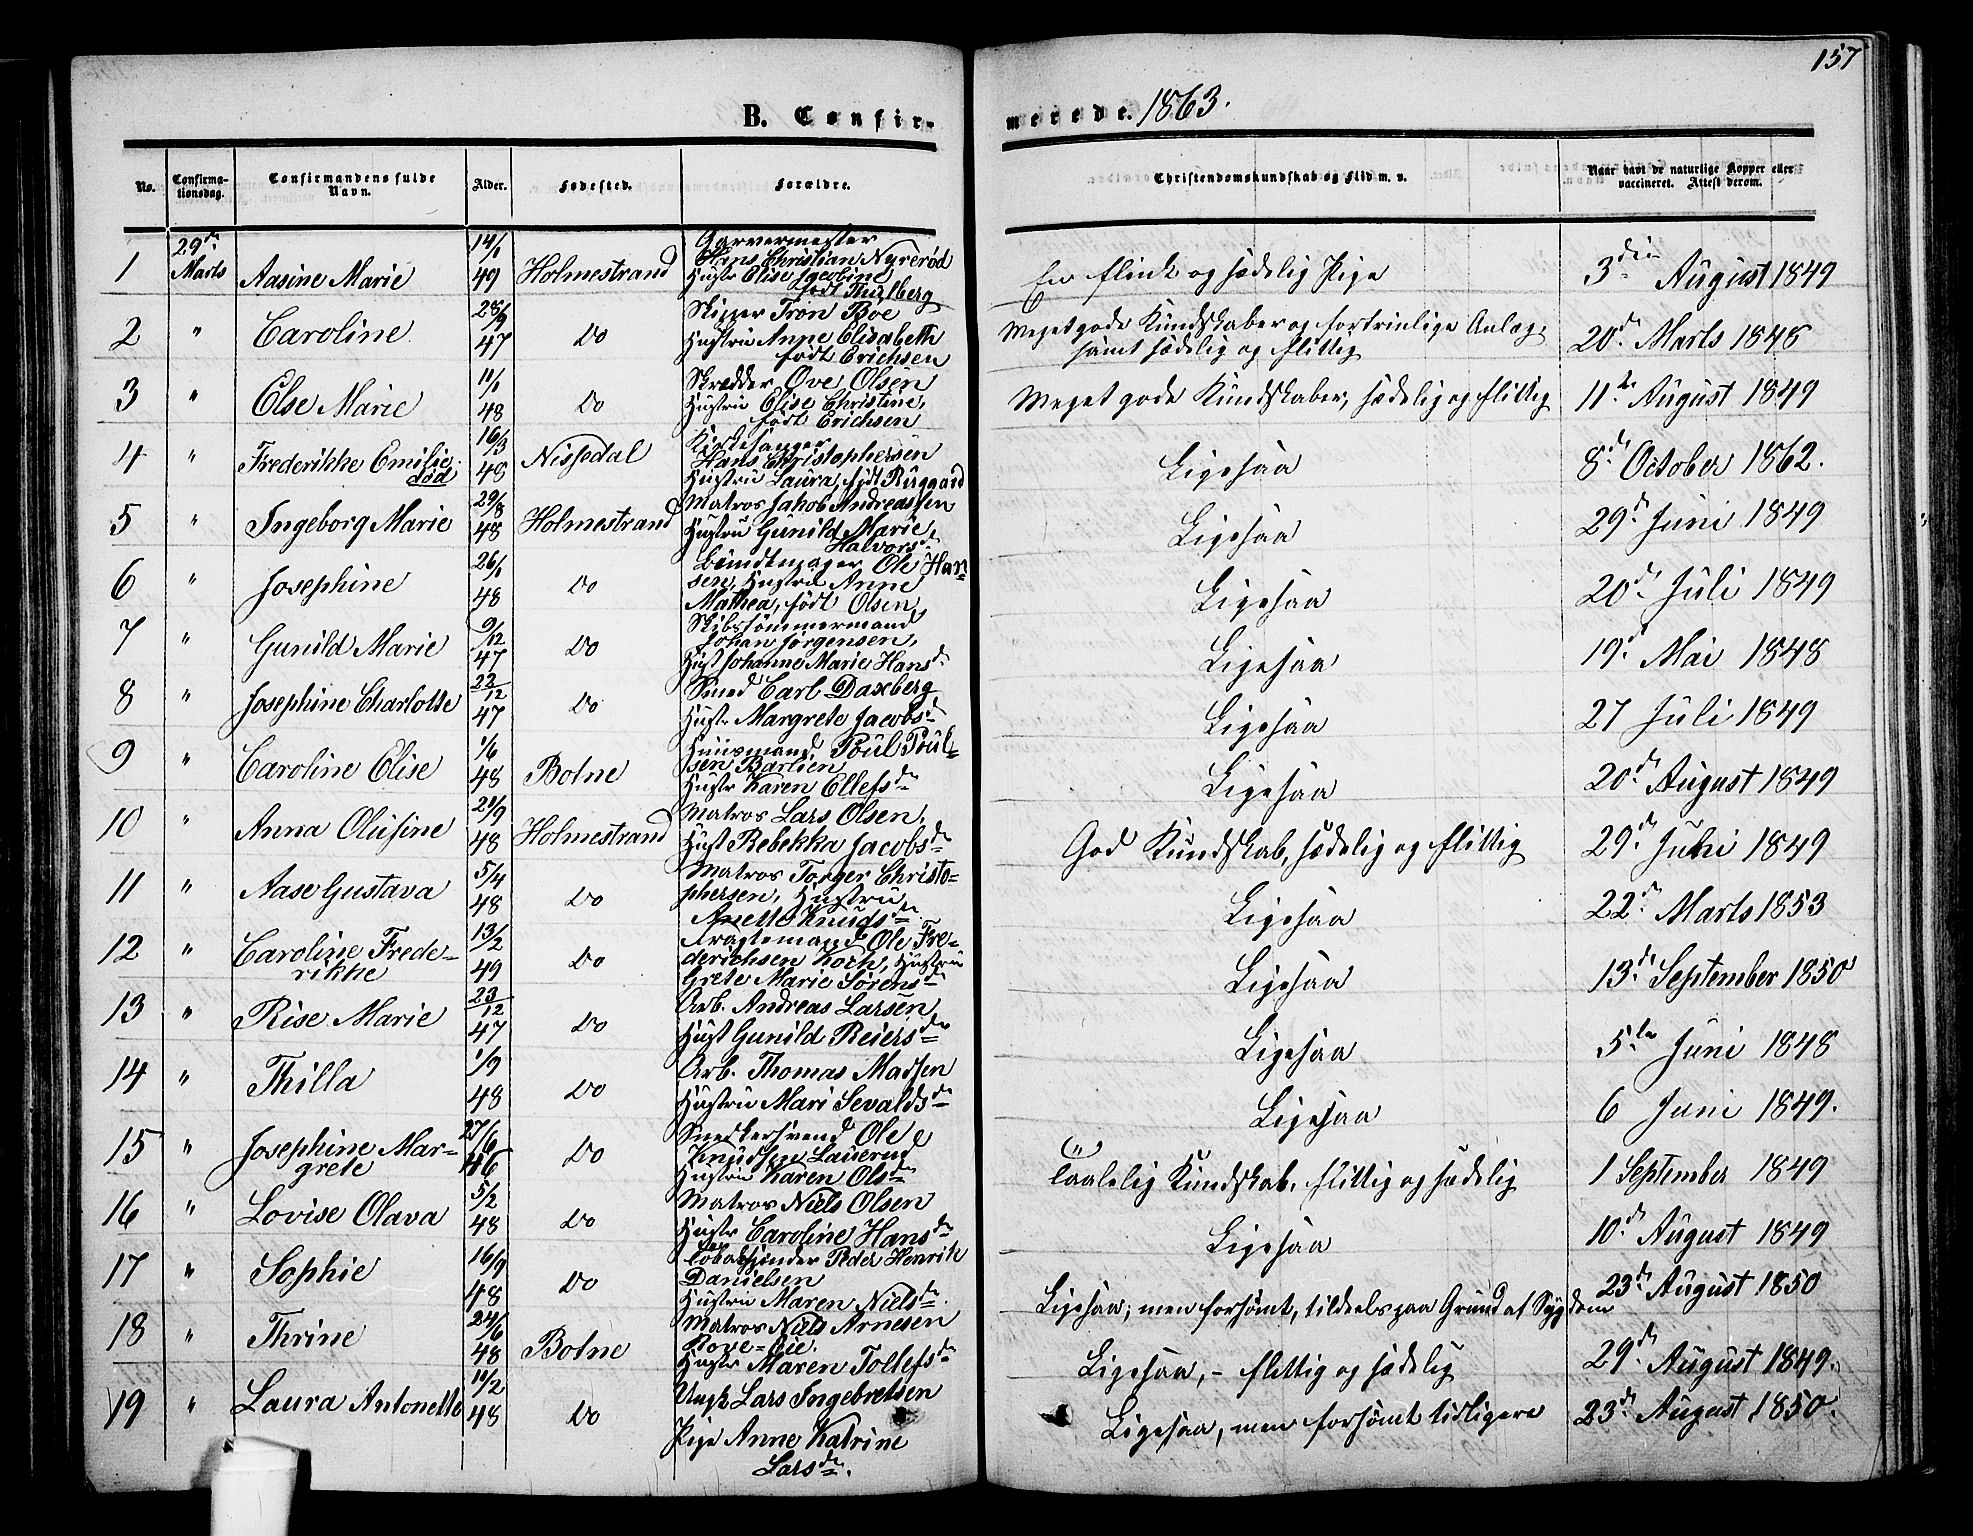 157
B. Confir-
merede. 1863.
No.
Confirma-
tionsdag.
Confirmandens fulde
Navn.
Alder.
Fødested.
Forældre.
Christendomskundskab og Flid m. v.
Naar havt de naturlige Kopper eller
vaccineret. Attest derom.
1 29de Marts Aasine Marie 14/1 49 Holmestrand
Garvermester
Hans Christian Nyrerød
Hustr Elise Jacobine
født Thulberg
En flink og sædelig Pige 3die August 1849
2 " Caroline 28/9 47 Do
Skipper Tron Boe
Hustru Anne Elisabeth
født Erichsen
Meget gode Kundskaber og fortrinlige Anlæg,
samt sædelig og flittig 20de Marts 1848
3 " Else Marie 11/1 48 Do
Skrædder Ove Olsen
Hustru Elise Christine,
født Erichsen
Meget gode Kundskaber, sædelig og flittig 11te August 1849
4 " Frederikke Emilie død 16/3 48 Nissedal
Kirkesanger
Hans Christophersen
Hustru Laura, født Ruggaard
Ligesaa 8de October 1862.
5 " Ingeborg Marie 29/8 48 Holmestrand
Matros Jakob Andreassen
Hustru Gunild Marie
Halvorsd.
Ligesaa 29de Juni 1849
6 " Josephine 26/1 48 Do
Bundtmager Ole Han-
sen, Hustru Anne
Mathea, født Olsen
Ligesaa 20de Juli 1849
7 " Gunild Marie 9/12 47 Do
Skibstømmermand
Johan Jørgensen,
Hust Johanne Marie Hansd.
Ligesaa 19. Mai 1848
8 " Josephine Charlotte 22/12 47 Do
Smed Carl Daxberg
Hustr Margrete Jacobsd
Ligesaa 27 Juli 1849
9 " Caroline Elise 1/6 48 Botne
Huusmand Poul Poul-
sen Bærlien
Hustr Karen Ellefsdr
Ligesaa 20de August 1849
10 " Anna Olufine 21/9 48 Holmestrand
Matros Lars Olsen,
Hust Rebekka Jacobsdr
God Kundskab, sædelig og flittig 29de Juni 1849
11 " Aase Gustava 5/4 48 Do
Matros Torger Christo-
phersen, Hustru
Anette Knudsdr
Ligesaa 22de Marts 1853
12 " Caroline Frede-
rikke 13/2 49 Do
Fragtemand Ole Fre-
derichsen Koch, Hustru
Grete Marie Sørensdr
Ligesaa 13de September 1850
13 " Rise Marie 23/12 47 Do
Arb. Andreas Larsen
Hust Gunild Reiersdr
Ligesaa 5te Juni 1848
14 " Thilla 1/9 48 Do
Arb. Thomas Madsen
Hustru Mari Sevaldsdr
Ligesaa 6 Juni 1849.
15 " Josephine Mar-
grete 27/6 46 Do
Snedkersvend Ole
Knudsen Lauerud
Hustru Karen Olsdr
Taalelig Kundskab, flittig og sædelig 1 September 1849
16 " Lovise Olava 5/2 48 Do
Matros Niels Olsen
Hustr Caroline Hansdr
Ligesaa 10de August 1849
17 " Sophie 16/9 48 Do
Tobakspinder Peder Henrik
Danielsen
Hustru Maren Nielsdr.
Ligesaa; men forsømt, tildeels paa Grund af Sygdom 23de August 1850
18 " Thrine 24/6 48 Botne
Matros Niels Arnesen
Rove-Eie.
Hustr Maren Tollefsdr
Ligesaa, - flittig og sædelig 29de August 1849.
19 " Laura Antonette 11/2 48 Do
Ungk Lars Ingebretsen
Pige Anne Katrine
Larsdr.
Ligesaa, men forsømt tidligere 23de August 1850.